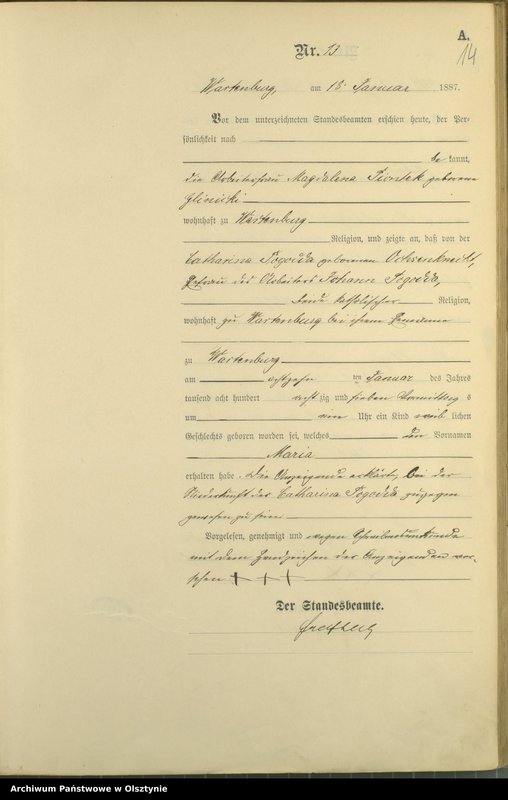 A.
14
Nr. 13
Wartenburg, am 18. Januar 1887.
Vor dem unterzeichneten Standesbeamten erschien heute, der Per=
sönlichkeit nach
be kannt,
die Arbeiterfrau Magdalena Piontek geborene
Glinicki
wohnhaft zu Wartenburg
Religion, und zeigte an, daß von der
Catharina Pogodda geborenen Ochsenknecht,
Ehefrau des Arbeiters Johann Pogodda,
beide katholischer Religion,
wohnhaft zu Wartenburg bei ihrem Ehemanne
zu Wartenburg
am achtzehn ten Januar des Jahres
tausend acht hundert acht zig und sieben Vormittag s
um ein Uhr ein Kind weib lichen
Geschlechts geboren worden sei, welches den Vornamen
Maria
erhalten habe. Die Anzeigende erklärt, bei der
Niederkunft der Catharina Pogodda zugegen
gewesen zu sein
Vorgelesen, genehmigt und wegen Schreibensunkunde
mit dem Handzeichen der Anzeigenden ver=
sehen + + +
Der Standesbeamte.
Archiwum Państwowe w Olsztynie